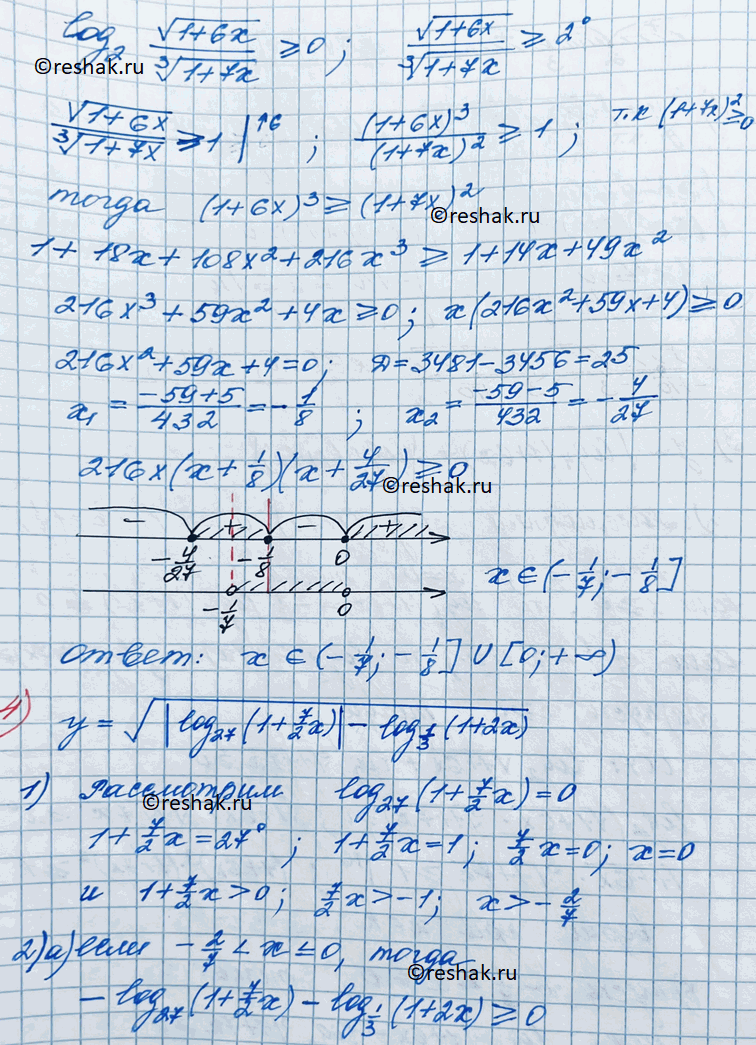 log₂ √(1+6x)/∛(1+7x) ≥ 0 ; √(1+6x)/∛(1+7x) ≥ 2⁰
©reshak.ru ©reshak.ru
√(1+6x)/∛(1+7x) ≥ 1 |↑6 ; (1+6x)³/(1+7x)² ≥ 1 ; т.к (1+7x)² ≥ 0
тогда (1+6x)³ ≥ (1+7x)²
©reshak.ru
1 + 18x + 108x² + 216x³ ≥ 1 + 14x + 49x²
216x³ + 59x² + 4x ≥ 0 ; x(216x² + 59x + 4) ≥ 0
216x² + 59x + 4 = 0 ; Д = 3481 − 3456 = 25
x₁ = (−59+5)/432 = −1/8 ; x₂ = (−59−5)/432 = −4/27
216x(x + 1/8)(x + 4/27) ≥ 0
©reshak.ru
− + − +
−4/27 −1/8 0
x ∈ (−1/7 ; −1/8]
−1/7 0
Ответ: x ∈ (−1/7 ; −1/8] ∪ [0 ; +∞)
4) y = √(|log₂₇(1 + 7/2 x)| − log_{1/3}(1+2x))
1) Рассмотрим log₂₇(1 + 7/2 x) = 0
©reshak.ru
1 + 7/2 x = 27⁰ ; 1 + 7/2 x = 1 ; 7/2 x = 0 ; x = 0
и 1 + 7/2 x > 0 ; 7/2 x > −1 ; x > −2/7
2) а) если −2/7 < x ≤ 0, тогда
©reshak.ru
−log₂₇(1 + 7/2 x) − log_{1/3}(1+2x) ≥ 0